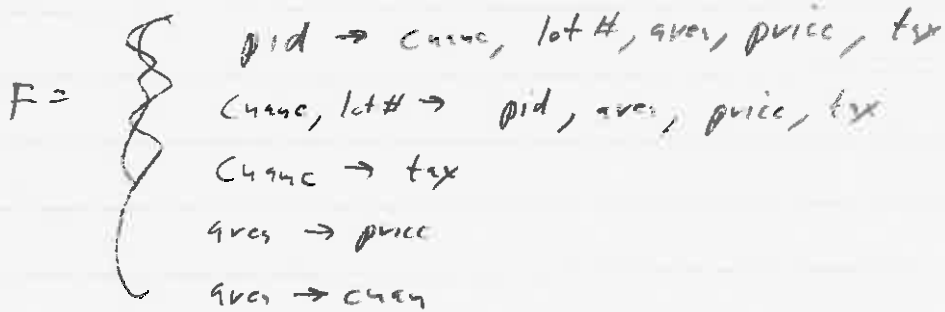 pid → cname, lot #, area, price, tax
F = { cname, lot# → pid, area, price, tax
cname → tax
area → price
area → cnam